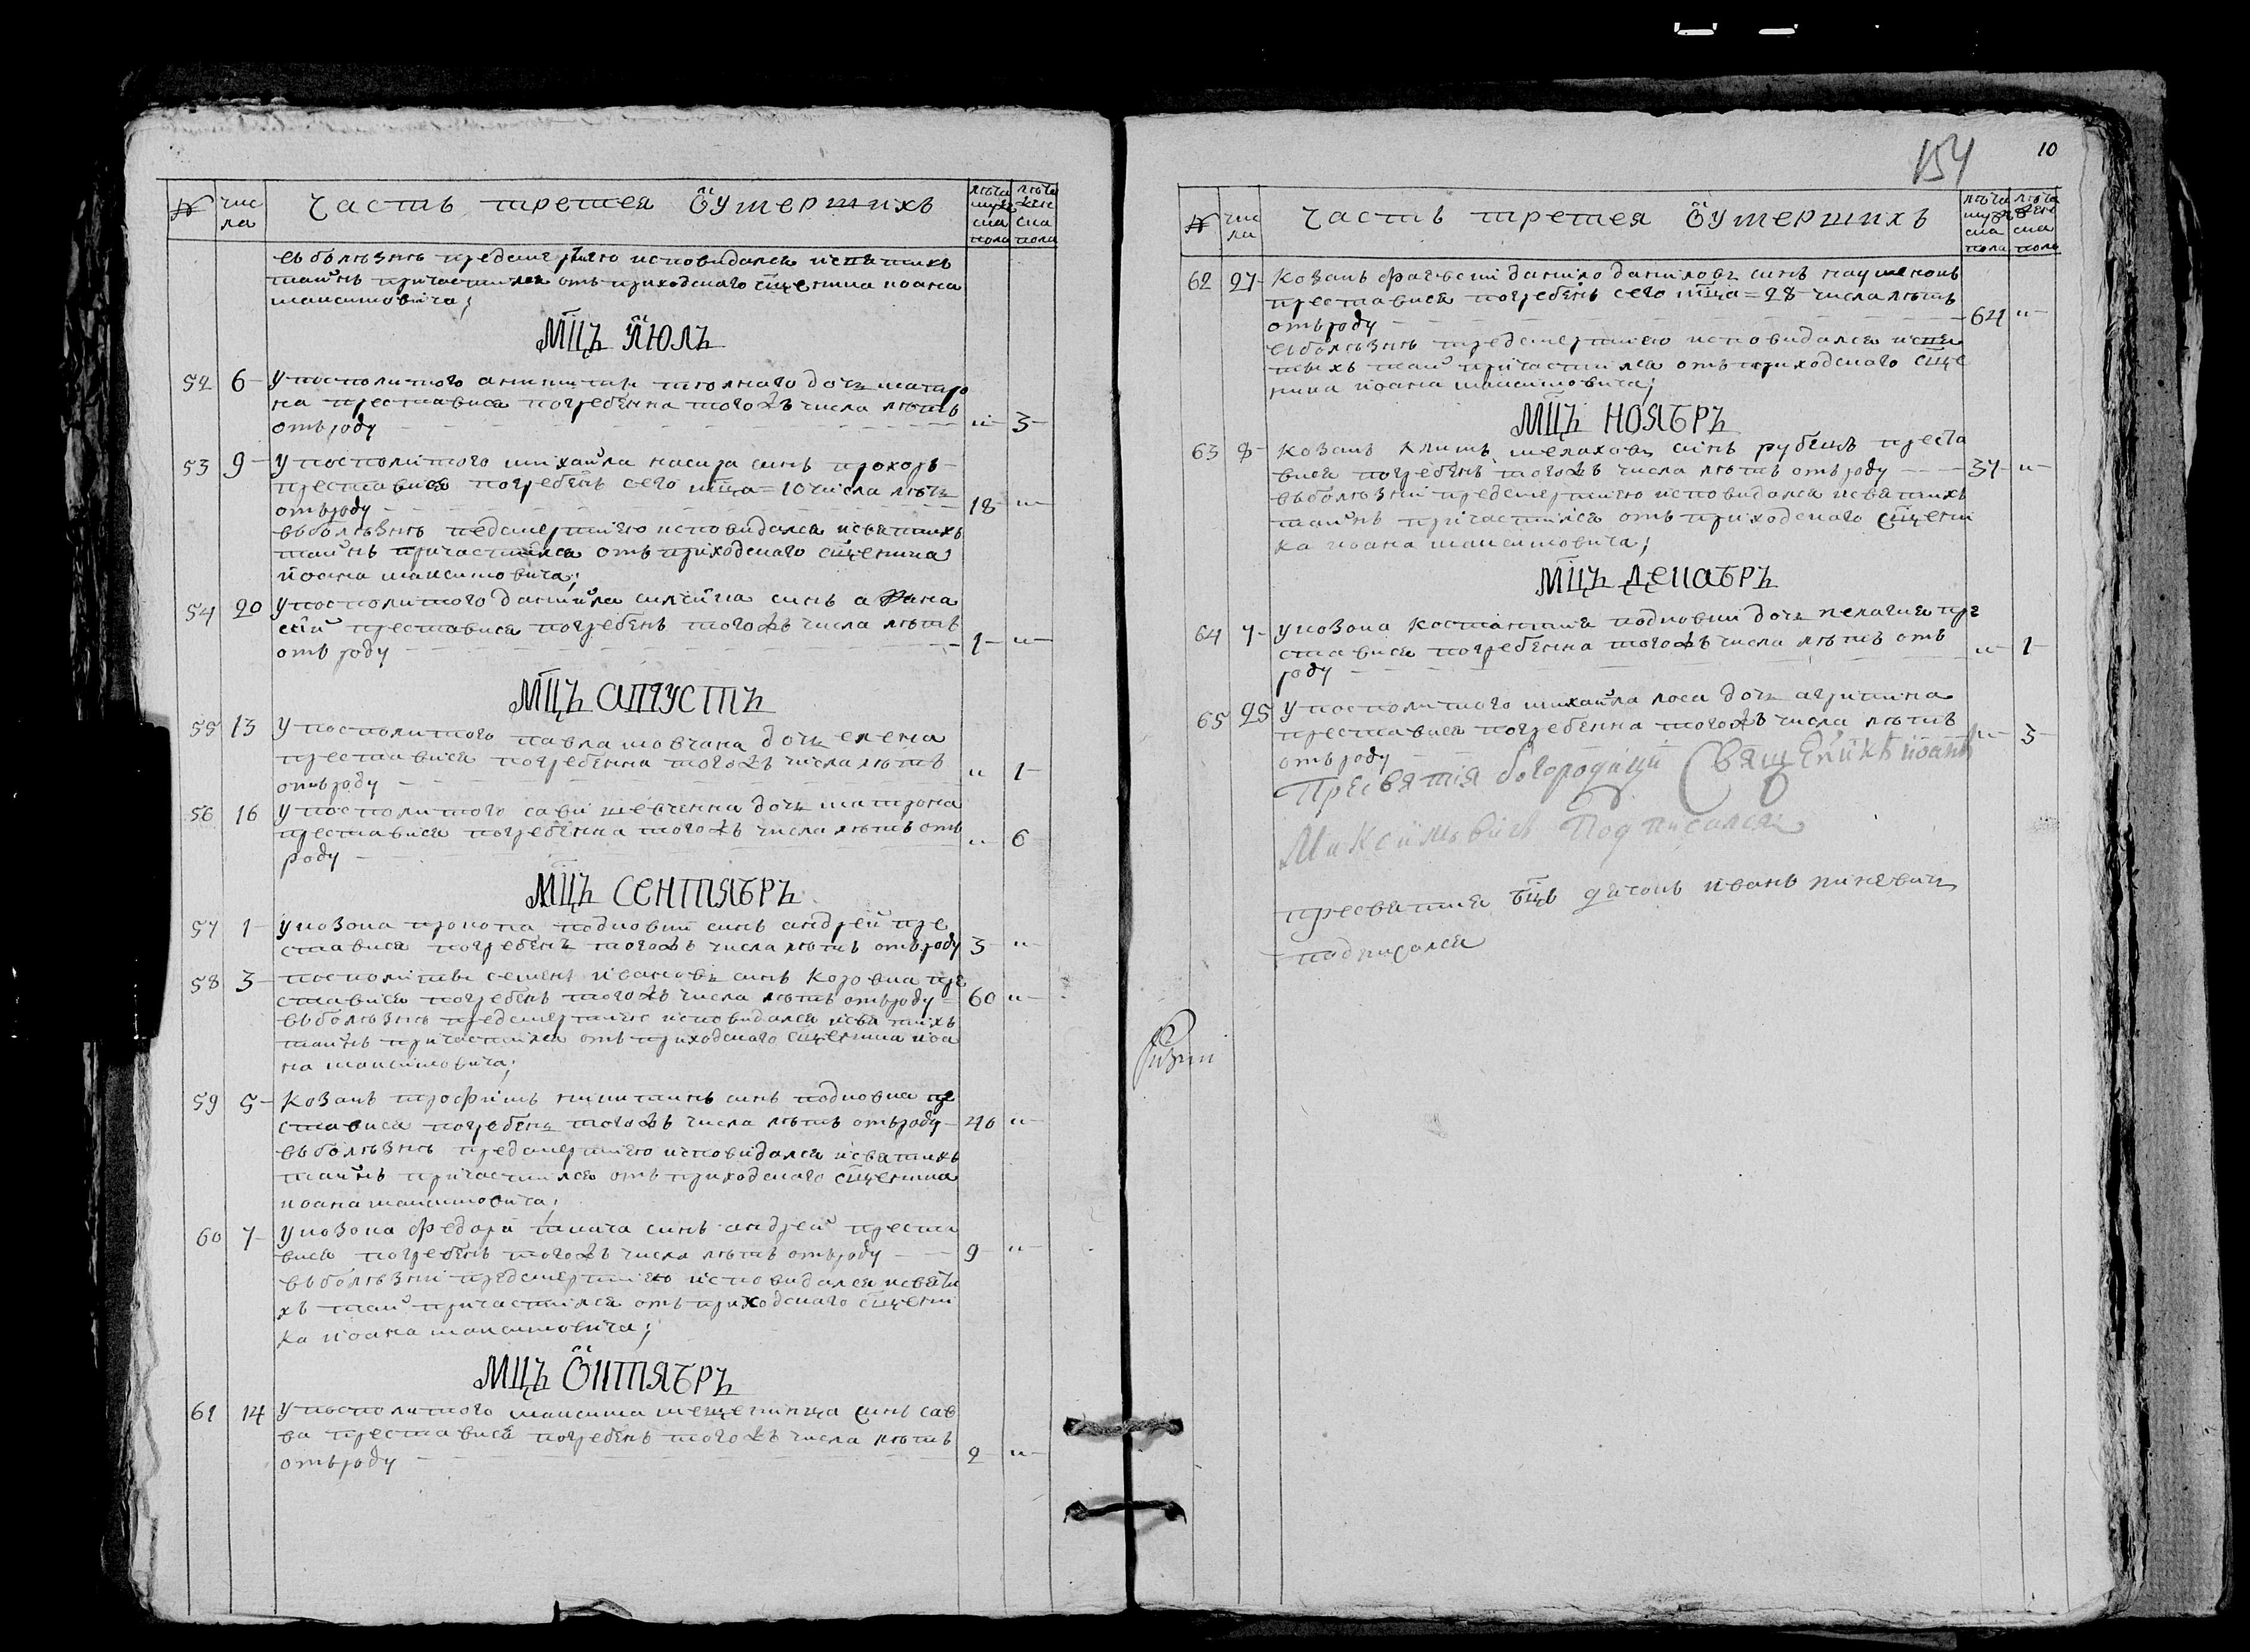 № чис ла Часть третея Ѽумершихъ лѣта мужеска пола лѣта женска пола
въболѣзнѣ предсмертною исповидался исвятихъ
тайнъ причастился отъприходскаго сщеника иоана
максимовича;
МЦЪ ЇЮЛЪ
52 6 Упосполитого дочъ матро
на преставися погребенна тогожъ числа лѣтъ
отъроду " 3
53 9 Упосполитого михайла касира синъ прохоръ
преставися погребенъ сего мца=10 числа лѣтъ
отъроду 18 "
въболѣзнѣ педсмертною исповидался исвятихъ
тайнъ причастился отъприходскаго сщеника
иоана максимовича;
54 20 Упосполитого данийла синъ афана
сий преставися погребенъ тогожъ числа лѣтъ
отъ роду 1 "
МЦЪ АПГУСТЪ
55 13 Упосполитого павла мовчана дочъ елена
преставися погребенна тогожъ числа лѣтъ
отъроду " 1
56 16 Упосполитого сави шевченка дочъ матрона
преставися погребенна тогожъ числа лѣтъ отъ
роду " 6
МЦЪ СЕНТЯБРЪ
57 1 Укозака прокопа подковки синъ андрей пре
ставися погребенъ тогожъ числа лѣтъ отъроду 3 "
58 3 посполитви семенъ ивановъ синъ коровка пре
ставися погребенъ тогожъ числа лѣтъ отъроду 60 "
въболѣзнѣ предсмертною исповидался исвятихъ
тайнъ причастился отъприходскаго сщеника иоа
на максимовича;
59 5 Козакъ трофимъ никитинъ синъ подковка пре
ставися погребенъ тогожъ числа лѣтъ отъроду 40 "
въболѣзнѣ предсмертною исповидался исвятихъ
тайнъ причастился отъприходскаго сщеника
иоана максимовича;
60 7 Укозака федора ткача синъ андрей преста
вися погребенъ тогожъ числа лѣтъ отъроду 9 "
въболѣзни предсмертною исповидался исвяти
хъ тай причастился отъприходскаго сщени
ка иоана максимовича;
МЦЪ ѼКТЯБРЪ
61 14 Упосполитого максима синъ сав
ва преставися погребенъ тогожъ числа лѣтъ
отъроду 2 "
154 10
№ чис ла Часть третея Ѽумершихъ лѣта мужеска пола лѣта женска пола
62 27 Козакъ данило даниловъ синъ науменокъ
преставися погребенъ сего мца=28 числа лѣтъ
отъроду 64 "
въболѣзнѣ предсмертною исповидался исвя
тыхъ тай причастился отъприходскаго сще
ника иоана максимовича;
МЦЪ НОЯБРЪ
63 8 Козакъ климъ мелаховъ синъ рубецъ преста
вися погребенъ тогожъ числа лѣтъ отъроду 37 "
въболѣзни предсмертною исповидался исвятихъ
тайнъ причастился отъприходскаго сщени
ка иоана максимовича;
МЦЪ ДЕКАБРЪ
64 7 Укозака костантия подковки дочъ пелагия пре
ставися погребенна тогожъ числа лѣтъ отъ
роду " 1
65 25 Упосполитого михайла лоса дочъ агрипина
преставися погребенна тогожъ числа лѣтъ
отъроду " 3
Пресвятія богородици Священикъ иоанъ
Максимовичъ Подписался
пресвятия бцы дяконъ иванъ
подписался